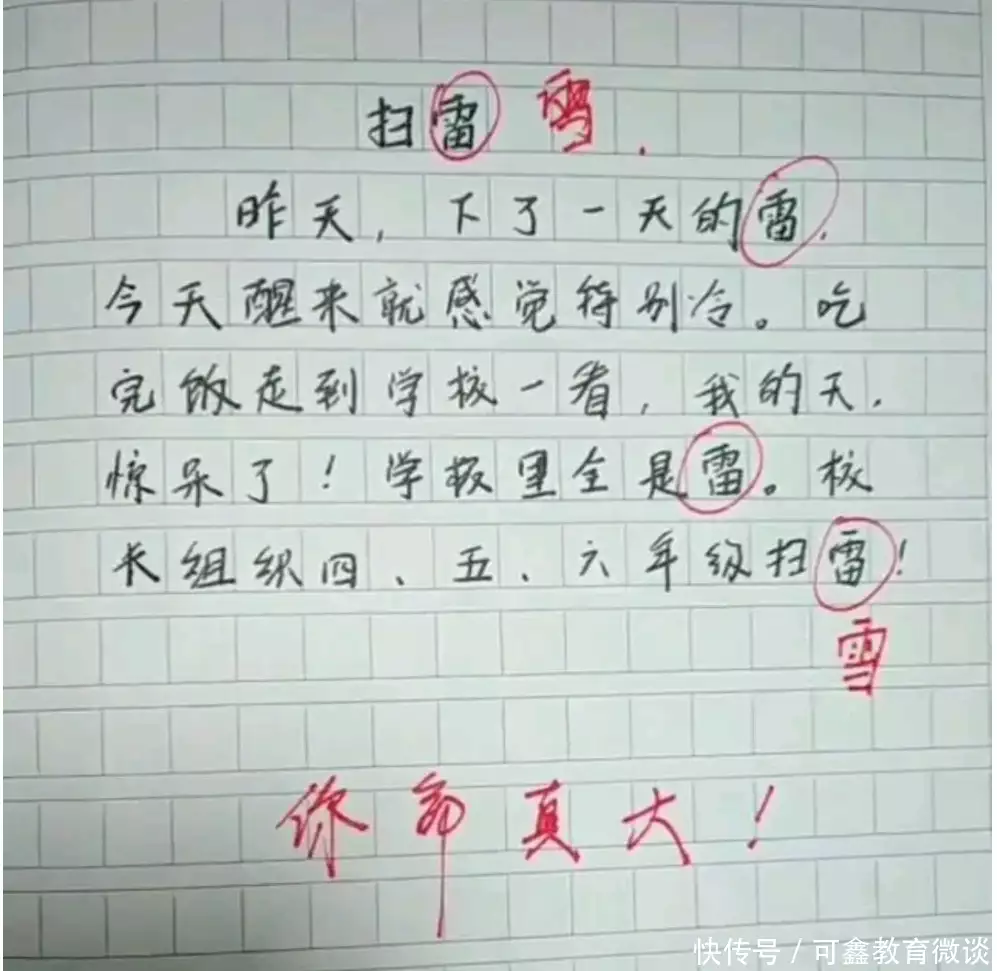 扫雷 雪.
昨天,下了一天的雷.
今天醒来就感觉特别冷。吃
完饭走到学校一看,我的天.
惊呆了!学校里全是雷。校
长组织四、五、六年级扫雷!
雪
你命真大!
快传号/可鑫教育微谈